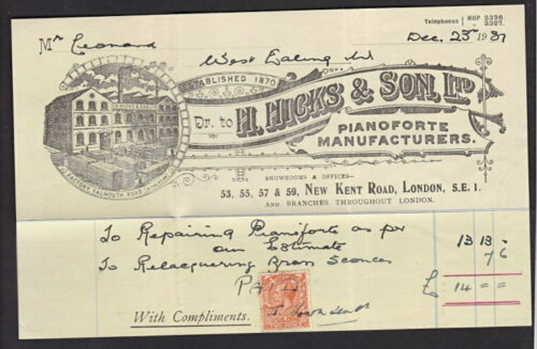 Telephones { HOP 2326.
2327.
Mr Leonard
Dec. 23rd 1931
West Ealing W
ESTABLISHED 1870
H. HICKS & SON
Dr. to H. HICKS & SON, LTD
PIANOFORTE
MANUFACTURERS.
FACTORY FALMOUTH ROAD
SHOWROOMS & OFFICES-
53, 55, 57 & 59, NEW KENT ROAD, LONDON, S.E. 1.
AND BRANCHES THROUGHOUT LONDON.
To Repairing Pianoforte as per 13 13 -
our Estimate
To Relacquering Brass Sconces 7 6
PAID £ 14 = =
With Compliments.